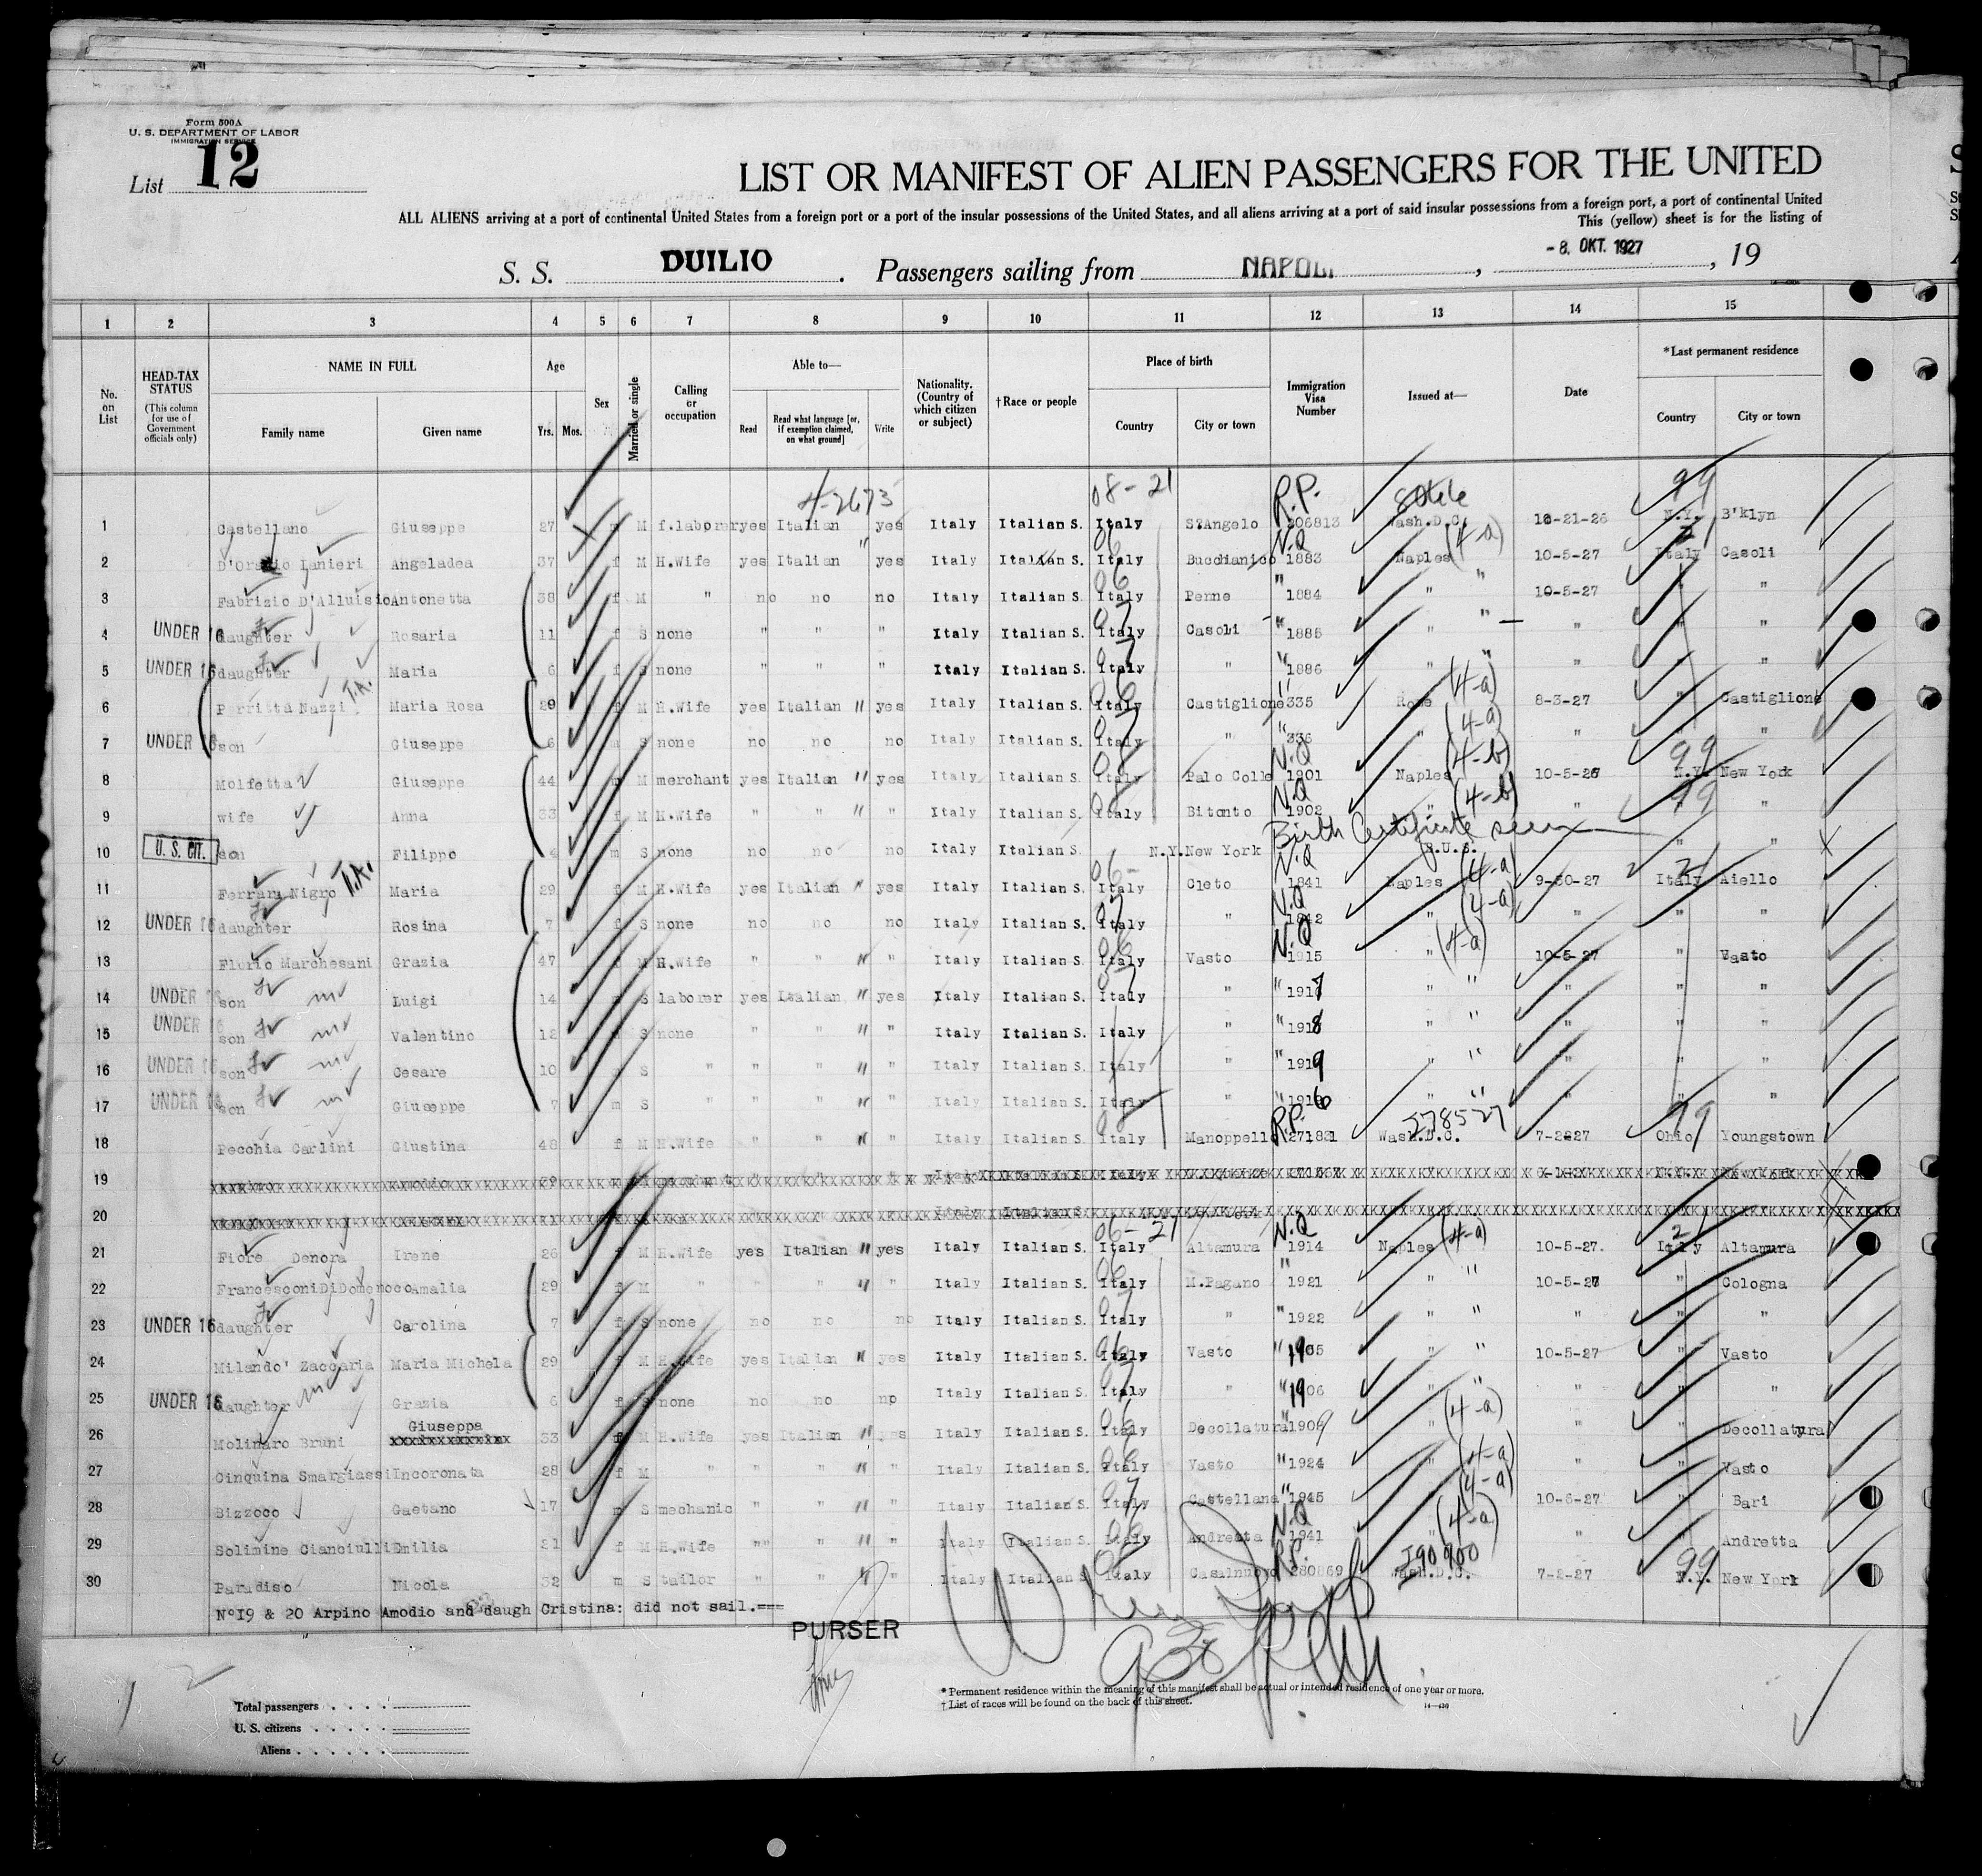 Form 500A
U. S. DEPARTMENT OF LABOR
IMMIGRATION SERVICE
List 12
LIST OR MANIFEST OF ALIEN PASSENGERS FOR THE UNITED
ALL ALIENS arriving at a port of continental United States from a foreign port or a port of the insular possessions of the United States, and all aliens arriving at a port of said insular possessions from a foreign port, a port of continental United
This (yellow) sheet is for the listing of
S. S. DUILIO. Passengers sailing from NAPOLI, -8. OKT. 1927, 19
1 2 3 4 5 6 7 8 9 10 11 12 13 14 15
No. on List
HEAD-TAX STATUS (This column for use of Government officials only)
NAME IN FULL Family name Given name
Age Yrs. Mos.
Sex
Married or single
Calling or occupation
Able to— Read Read what language [or, if exemption claimed, on what ground] Write
Nationality. (Country of which citizen or subject)
†Race or people
Place of birth Country City or town
Immigration Visa Number
Issued at—
Date
*Last permanent residence Country City or town
4-2673 08-21 R.P. 99
1 Castellano Giuseppe 27 M f.laborer yes Italian yes Italy Italian S. Italy S?Angelo 206813 Wash.D.C. 10-21-26 N.Y. B'klyn
2 Lanieri Angeladea 37 f M H.Wife yes Italian " yes Italy Italian S. Italy Bucchianico N.Q 1883 Naples (4-a) 10-5-27 Italy Casoli
3 Fabrizio D'Alluisio Antonetta 38 f M " no no no Italy Italian S. Italy Penne " 1884 " " 10-5-27 " "
4 UNDER 16 daughter Rosaria 11 f S none " " " Italy Italian S. Italy Casoli " 1885 " " " " "
5 UNDER 16 daughter Maria 6 f S none " " " Italy Italian S. Italy " " 1886 " " " " "
6 Perritta Nazzi T.A. Maria Rosa 29 f M H.Wife yes Italian " yes Italy Italian S. Italy Castiglione " 335 Rome (4-a) 8-3-27 " Castiglione
7 UNDER 16 son Giuseppe 6 m S none no no no Italy Italian S. Italy " 336 " (4-a) " " "
8 Molfetta Giuseppe 44 m M merchant yes Italian " yes Italy Italian S. Italy Palo Colle N.Q 1901 Naples (4-b) 10-5-26 99 N.Y. New York
9 wife Anna 33 f M H.Wife " " " " Italy Italian S. Italy Bitonto N.Q 1902 " (4-b) " 99 " "
Birth Certificate seen
10 U. S. CIT. son Filippo 4 m S none no no no Italy Italian S. N.Y. New York " "
11 Ferraru Nigro T.A. Maria 29 f M H.Wife yes Italian " yes Italy Italian S. Italy Cleto N.Q 1841 Naples (4-a) 9-30-27 Italy Aiello
12 UNDER 16 daughter Rosina 7 f S none no no no Italy Italian S. Italy " N.Q 1842 " (4-a) " " "
13 Florio Marchesani Grazia 47 f M H.Wife " " " " Italy Italian S. Italy Vasto N.Q 1915 " (4-a) 10-5-27 " Vasto
14 UNDER 16 son Luigi 14 m S laborer yes Italian " yes Italy Italian S. Italy " " 1917 " " " " "
15 UNDER 16 son Valentino 12 m S none " " " " Italy Italian S. Italy " " 1918 " " " " "
16 UNDER 16 son Cesare 10 S " " " " " Italy Italian S. Italy " " 1919 " " " " "
17 UNDER 16 son Giuseppe 7 m S " " " " " Italy Italian S. Italy " " 1916 " " " " "
18 Pecchia Carlini Giustina 48 f M H.Wife " " " " Italy Italian S. Italy Manoppello R.P. Wash.D.C. 7-2-27 99 Ohio Youngstown
19
20
21 Fiore Denora Irene 26 f M H.Wife yes Italian " yes Italy Italian S. 06-21 Italy Altamura N.Q 1914 Naples (4-a) 10-5-27. Italy Altamura
22 Francesconi Di Domenoco Amalia 29 f M " " " " " Italy Italian S. Italy M.Pagano " 1921 " " 10-5-27 " Cologna
23 UNDER 16 daughter Carolina 7 f S none no no no Italy Italian S. Italy " " 1922 " " " " "
24 Milando' Zaccaria Maria Michela 29 f M H.Wife yes Italian " yes Italy Italian S. Italy Vasto " 1905 " " 10-5-27 " Vasto
25 UNDER 16 daughter Grazia 6 f S none no no no Italy Italian S. Italy " " 1906 " " " " "
26 Molinaro Bruni Giuseppa 33 f M H.Wife yes Italian " yes Italy Italian S. Italy Decollatura " 1909 " (4-a) " " Decollatura
27 Cinquina Smargiassi Incoronata 28 f M " " " " " Italy Italian S. Italy Vasto " 1924 " (4-a) " " Vasto
28 Bizzoco Gaetano 17 m S mechanic " " " " Italy Italian S. Italy Castellana " 1945 " (4-a) 10-6-27 " Bari
29 Solimine Cianciulli Emilia 21 f M H.Wife " " " " Italy Italian S. Italy Andretta N.Q 1941 " (4-a) " " Andretta
30 Paradiso Nicola 32 m S tailor " " " " Italy Italian S. Italy Casalnuovo R.P. 280869 Wash.D.C. 7-2-27 99 N.Y. New York
N°19 & 20 Arpino Amodio and daugh Cristina: did not sail.===
PURSER
* Permanent residence within the meaning of this manifest shall be actual or intended residence of one year or more.
† List of races will be found on the back of this sheet.
Total passengers
U. S. citizens
Aliens